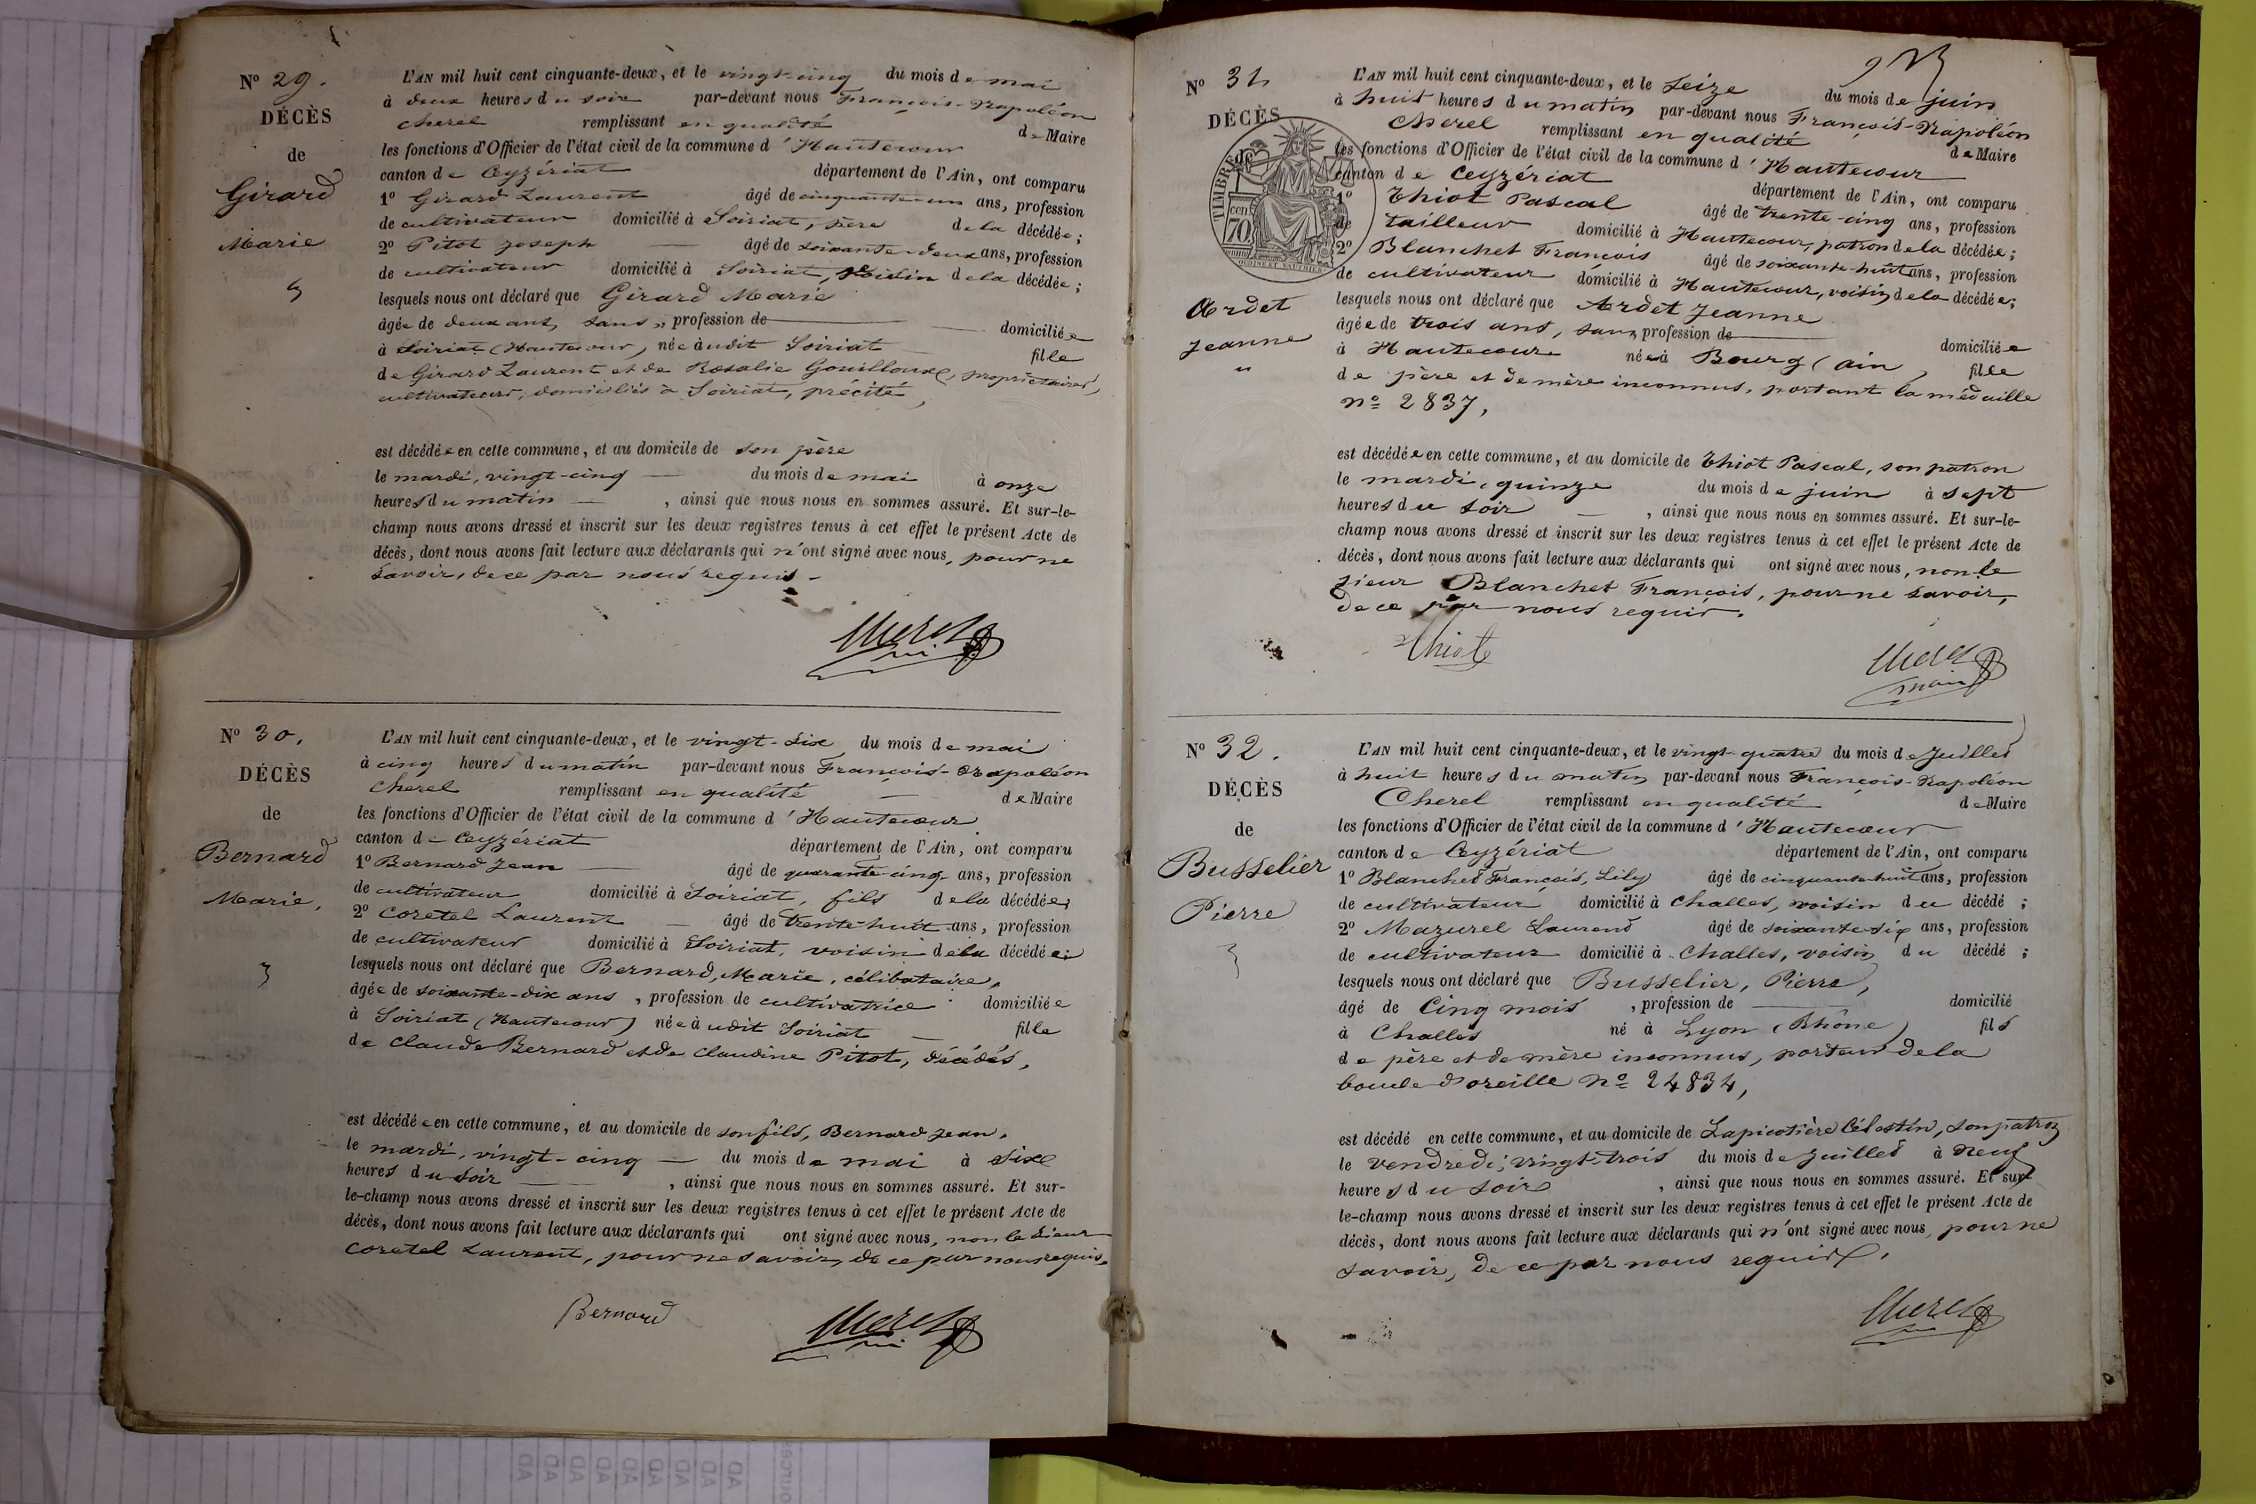 Nº 29.
DÉCÈS
de
Girard
Marie
L'AN mil huit cent cinquante-deux, et le vingt-cinq du mois de mai
à deux heures du soir par-devant nous François-Napoléon
Cherel remplissant en qualité de Maire
les fonctions d'Officier de l'état civil de la commune d'Hautecour
canton de Ceyzériat département de l'Ain, ont comparu
1º Girard Laurent âgé de cinquante-un ans, profession
de cultivateur domicilié à Soiriat, père de la décédée;
2º Pitot Joseph âgé de soixante-deux ans, profession
de cultivateur domicilié à Soiriat, voisin de la décédée;
lesquels nous ont déclaré que Girard Marie
âgée de deux ans, sans profession de domiciliée
à Soiriat (Hautecour) née à udit Soiriat fille
de Girard Laurent et de Rosalie Gouilloux, propriétaires,
cultivateurs, domiciliés à Soiriat, précité,
est décédée en cette commune, et au domicile de son père
le mardi, vingt-cinq du mois de mai à onze
heures du matin, ainsi que nous nous en sommes assuré. Et sur-le-
champ nous avons dressé et inscrit sur les deux registres tenus à cet effet le présent Acte de
décès, dont nous avons fait lecture aux déclarants qui n'ont signé avec nous, pour ne
savoir, de ce par nous requis.
Cherel
Nº 30.
DÉCÈS
de
Bernard
Marie,
L'AN mil huit cent cinquante-deux, et le vingt-six du mois de mai
à cinq heures du matin par-devant nous François-Napoléon
Cherel remplissant en qualité de Maire
les fonctions d'Officier de l'état civil de la commune d'Hautecour
canton de Ceyzériat département de l'Ain, ont comparu
1º Bernard Jean âgé de quarante-cinq ans, profession
de cultivateur domicilié à Soiriat, fils de la décédée;
2º Coretel Laurent âgé de trente-huit ans, profession
de cultivateur domicilié à Soiriat, voisin de la décédée;
lesquels nous ont déclaré que Bernard, Marie, célibataire,
âgée de soixante-dix ans, profession de cultivatrice domiciliée
à Soiriat (Hautecour) née à udit Soiriat fille
de Claude Bernard et de Claudine Pitot, décédés,
est décédée en cette commune, et au domicile de son fils, Bernard Jean,
le mardi, vingt-cinq du mois de mai à six
heures du soir, ainsi que nous nous en sommes assuré. Et sur-
le-champ nous avons dressé et inscrit sur les deux registres tenus à cet effet le présent Acte de
décès, dont nous avons fait lecture aux déclarants qui ont signé avec nous, non le sieur
Coretel Laurent, pour ne savoir, de ce par nous requis.
Bernard Cherel
Nº 31
DÉCÈS
de
TIMBRE
70
Ardet
Jeanne
"
L'AN mil huit cent cinquante-deux, et le seize du mois de juin
à huit heures du matin par-devant nous François-Napoléon
Cherel remplissant en qualité de Maire
les fonctions d'Officier de l'état civil de la commune d'Hautecour
canton de Ceyzériat département de l'Ain, ont comparu
1º Thiot Pascal âgé de trente-cinq ans, profession
de tailleur domicilié à Hautecour, patron de la décédée;
2º Blanchet François âgé de soixante-huit ans, profession
de cultivateur domicilié à Hautecour, voisin de la décédée;
lesquels nous ont déclaré que Ardet Jeanne
âgée de trois ans, sans profession de domiciliée
à Hautecour née à Bourg (ain) fille
de père et de mère inconnus, portant la médaille
nº 2837,
est décédée en cette commune, et au domicile de Thiot Pascal, son patron
le mardi, quinze du mois de juin à sept
heures du soir, ainsi que nous nous en sommes assuré. Et sur-le-
champ nous avons dressé et inscrit sur les deux registres tenus à cet effet le présent Acte de
décès, dont nous avons fait lecture aux déclarants qui ont signé avec nous, non le
sieur Blanchet François, pour ne savoir,
de ce par nous requis.
Thiot Cherel
maire
Nº 32.
DÉCÈS
de
Busselier
Pierre
L'AN mil huit cent cinquante-deux, et le vingt-quatre du mois de Juillet
à huit heures du matin par-devant nous François-Napoléon
Cherel remplissant en qualité de Maire
les fonctions d'Officier de l'état civil de la commune d'Hautecour
canton de Ceyzériat département de l'Ain, ont comparu
1º Blanchet François, Lily âgé de cinquante-huit ans, profession
de cultivateur domicilié à Challes, voisin du décédé;
2º Mazurel Laurent âgé de soixante-six ans, profession
de cultivateur domicilié à Challes, voisin du décédé;
lesquels nous ont déclaré que Busselier, Pierre,
âgé de Cinq mois, profession de domicilié
à Challes né à Lyon (Rhône) fils
de père et de mère inconnus, porteur de la
boucle d'oreille nº 24834,
est décédé en cette commune, et au domicile de Lapicotière Célestin, son patron
le vendredi, vingt-trois du mois de Juillet à neuf
heures du soir, ainsi que nous nous en sommes assuré. Et sur-
le-champ nous avons dressé et inscrit sur les deux registres tenus à cet effet le présent Acte de
décès, dont nous avons fait lecture aux déclarants qui n'ont signé avec nous, pour ne
savoir, de ce par nous requis.
Cherel